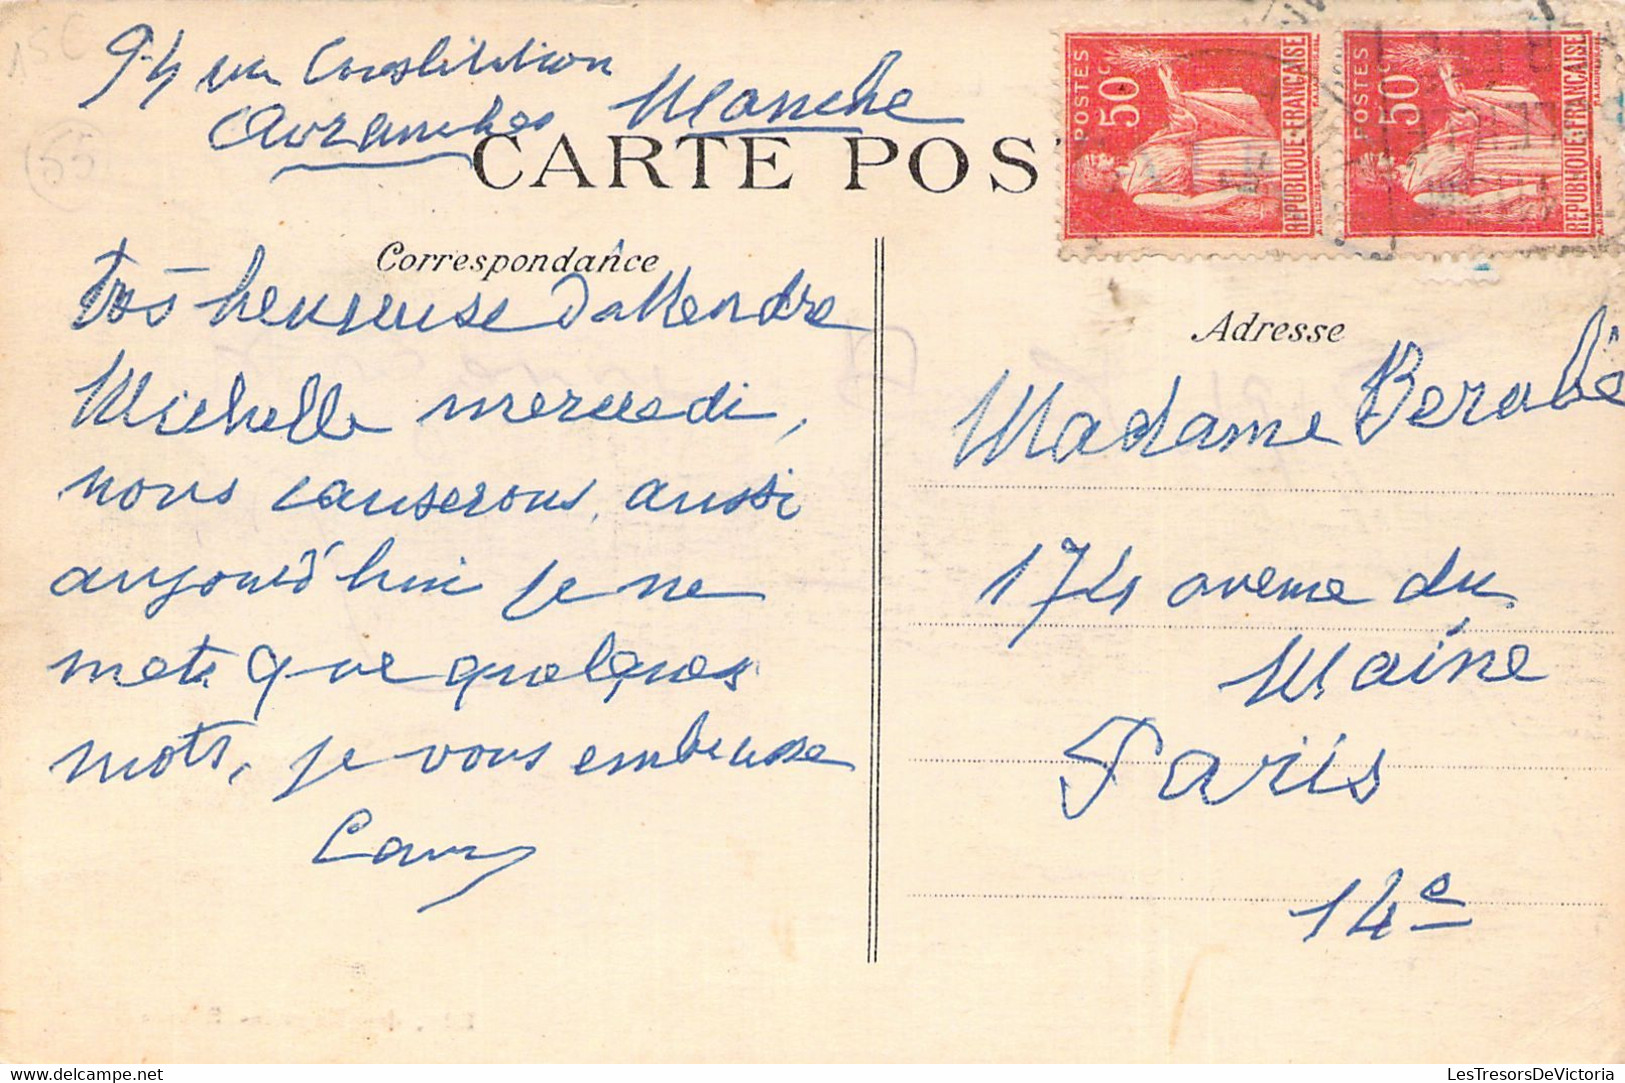 15€
55
94 rue Constitution
Avranches Manche
CARTE POS
POSTES
50c
REPUBLIQUE-FRANÇAISE
POSTES
50c
REPUBLIQUE-FRANÇAISE
Correspondance
très heureuse dattendre
Michelle mercredi,
nous causerons, aussi
aujourd'hui je ne
mets que quelques
mots, je vous embrasse
Adresse
Madame
174 avenue du
Maine
Paris
14e
LesTresorsDeVictoria
delcampe.net